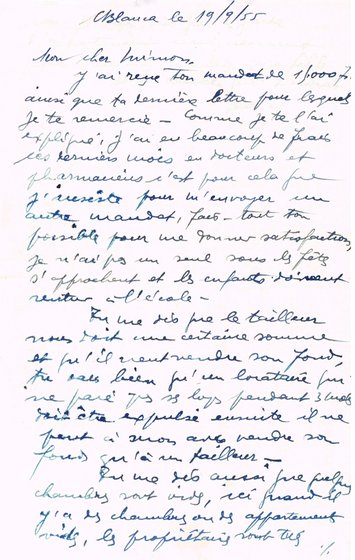 CBlanca le 19/9/55
Mon cher Mimon,
J'ai reçue ton mandat de 15000 f.
ainsi que ta dernière lettre pour lesquels
je te remercie - Comme je te l'ai
expliqué, j'ai eu beaucoup de frais
ces derniers mois en docteurs et
pharmaciens c'est pour cela que
j'insiste pour m'envoyer un
autre mandat, fais - tout ton
possible pour me donner satisfaction
je n'ai pas un seul sous les fête
s'approchent et les enfants doivent
rentrer à l'école -
Tu me dis que le tailleur
nous doit une certaine somme
et qu'il veut vendre son fond,
tu sais bien qu'un locataire qui
ne paye pas sa loyer pendant 3 mois
doit être expulsé ensuite il ne
peut à mon avis vendre son
fonds qu'à un tailleur -
Tu me dis aussi que quelques
chambres sont vides, ici quand il
y'a des chambres ou des appartements
vides, les propriétaires sont